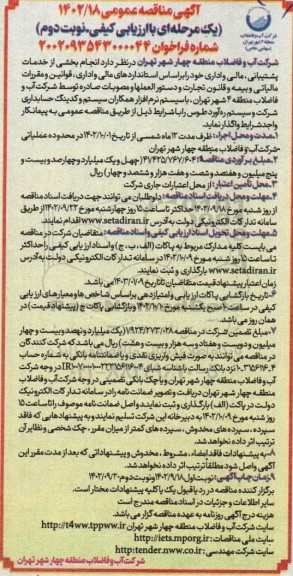 آگهی مناقصه عمومی ۱۴۰۲/۱۸
(یک مرحله‌ای با ارزیابی کیفی-نوبت دوم)
شماره فراخوان ۲۰۰۲۰۹۳۵۴۳۰۰۰۰۴۴
شرکت آب و فاضلاب منطقه چهار شهر تهران در نظر دارد انجام بخشی از خدمات
پشتیبانی، مالی و اداری خود را بر اساس استانداردهای مالی و اداری، قوانین و مقررات
مالیاتی و بیمه و قانون تجارت و دستورالعملها و مصوبات صادره توسط شرکت آب و
فاضلاب منطقه ۴ شهر تهران، با سیستم نرم افزار همکاران سیستم و کدینگ حسابداری
شرکت و سیستم ره‌آورد طوس را با شرایط ذیل از طریق مناقصه عمومی به پیمانکار
واجد شرایط واگذار نماید.
۱-مدت و محل اجرا: ظرف مدت ۱۲ ماه شمسی از تاریخ ۱۴۰۲/۱۰/۰۱ در محدوده عملیاتی
شرکت آب و فاضلاب منطقه چهار شهر تهران
۲-مبلغ برآوردی مناقصه: ۴۱/۴۲۵/۷۶۷/۷۰۴ (چهل و یک میلیارد و چهارصد و بیست و
پنج میلیون و هفتصد و شصت و هفت هزار و هفتصد و چهار) ریال
۳-محل تأمین اعتبار: از محل اعتبارات جاری شرکت
۴-مهلت و محل دریافت اسناد مناقصه: داوطلبان می‌توانند جهت دریافت اسناد مناقصه
از روز شنبه مورخ ۱۴۰۲/۰۹/۱۸ حداکثر تا ساعت ۱۵ روز چهارشنبه مورخ ۱۴۰۲/۰۹/۲۲ از طریق
سامانه تدارکات الکترونیکی دولت به آدرس www.setadiran.ir اقدام نمایند.
۵-مهلت و محل تحویل اسناد ارزیابی کیفی و اسناد مناقصه: متقاضیان شرکت در مناقصه
می‌بایست کلیه مدارک مربوط به پاکات (الف، ب، ج) و اسناد ارزیابی کیفی را حداکثر
تا ساعت ۱۵ روز شنبه مورخ ۱۴۰۲/۱۰/۰۹ در سامانه تدارکات الکترونیکی دولت به آدرس
www.setadiran.ir بارگذاری و ثبت نمایند.
زمان اعتبار پیشنهاد قیمت متقاضیان تا تاریخ ۱۴۰۳/۰۱/۰۹ می باشد.
۶-تاریخ بازگشایی پاکات ارزیابی و امتیازدهی بر اساس شاخص‌ها و معیارهای ارزیابی
همان روز می باشد.
۷-مبلغ تضمین شرکت در مناقصه ۱/۹۲۴/۲۷۳/۰۲۸ (یک میلیارد و نهصد و بیست و چهار
میلیون و دویست و هفتاد و سه هزار و بیست و هشت) ریال می باشد که شرکت کنندگان
در مناقصه می توانند به صورت فیش واریزی نقدی و یا ضمانتنامه بانکی به شماره حساب
آب و فاضلاب منطقه چهار شهر تهران و یا چک بانکی تضمینی در وجه شرکت آب و فاضلاب
منطقه چهار شهر تهران دریافت و تصویر ضمانت نامه را در سامانه تدارکات الکترونیک
دولت در پاکت (الف) بارگذاری و ثبت نمایند و اصل ضمانت نامه موصوف را تا ساعت ۱۵
روز شنبه مورخ ۱۴۰۲/۱۰/۰۹ به دبیرخانه این شرکت تسلیم نمایند و به پیشنهاد هایی که فاقد
سپرده، سپرده های مخدوش، سپرده های کمتر از میزان مقرر، چک شخصی و نظایر آن
ترتیب اثر داده نخواهد شد.
۸-به پیشنهادات فاقد امضاء، مشروط، مخدوش و پیشنهاداتی که بعد از مدت مقرر این
آگهی واصل شود مطلقا ترتیب اثر داده نخواهد شد.
۹-زمان چاپ آگهی: نوبت اول ۱۴۰۲/۹/۱۸ و نوبت دوم ۱۴۰۲/۰۹/۲۰
برگزار کننده مناقصه در رد یا قبول یک یا کلیه پیشنهادات مختار است.
سایر اطلاعات و جزئیات در اسناد مناقصه مندرج است.
هزینه درج آگهی روزنامه به عهده مناقصه گزار می باشد.
سایت شرکت آب و فاضلاب منطقه چهار شهر تهران http://t4ww.tppww.ir
سایت ملی مناقصات: http://iets.mporg.ir
سایت شرکت مهندسی: http:tender.nww.co.ir
شرکت آب و فاضلاب منطقه چهار شهر تهران